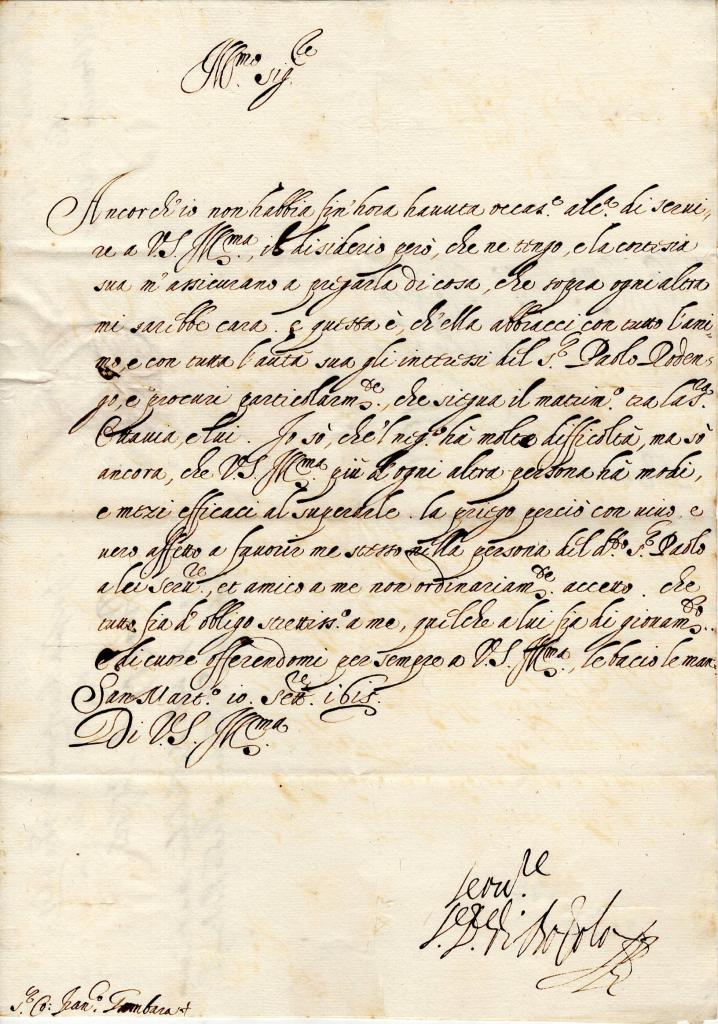 Ill.mo Sig.re
Ancorch'io non habbia sin'hora havuta occas.e alc.a di servi-
re a V.S. Ill.ma, il disiderio però, che ne tengo, e la cortesia
sua m'assicurano a pregarla di cosa, che sopra ogni altra
mi sarebbe cara. e questa è, ch'ella abbracci con tutto l'ani-
mo, e con tutta l'aut.tà sua gli interessi del s.r Paolo Roden-
go, e procuri particolarm.te, che siegua il matrim.o tra la s.ra
Ottavia, e lui. Io sò, che'l neg.o hà molte difficoltà, ma sò
ancora, che V.S. Ill.ma più d'ogni altra persona hà modi,
e mezi efficaci al superarle. la priego perciò con vivo, e
vero affetto a favorir me stesso nella persona del d.to s.r Paolo
a lei serv.re, et amico a me non ordinariam.te accetto. che
tutto sia d'obligo strettiss.o a me, quel che a lui sia di giovam.to
e di cuore offerendomi per sempre a V.S. Ill.ma, le bacio le man.
San Mart.o 10. Sett.re 1615.
Di V.S. Ill.ma
Ser.re
di Bozolo
s.r Co: Fran.o Gambara